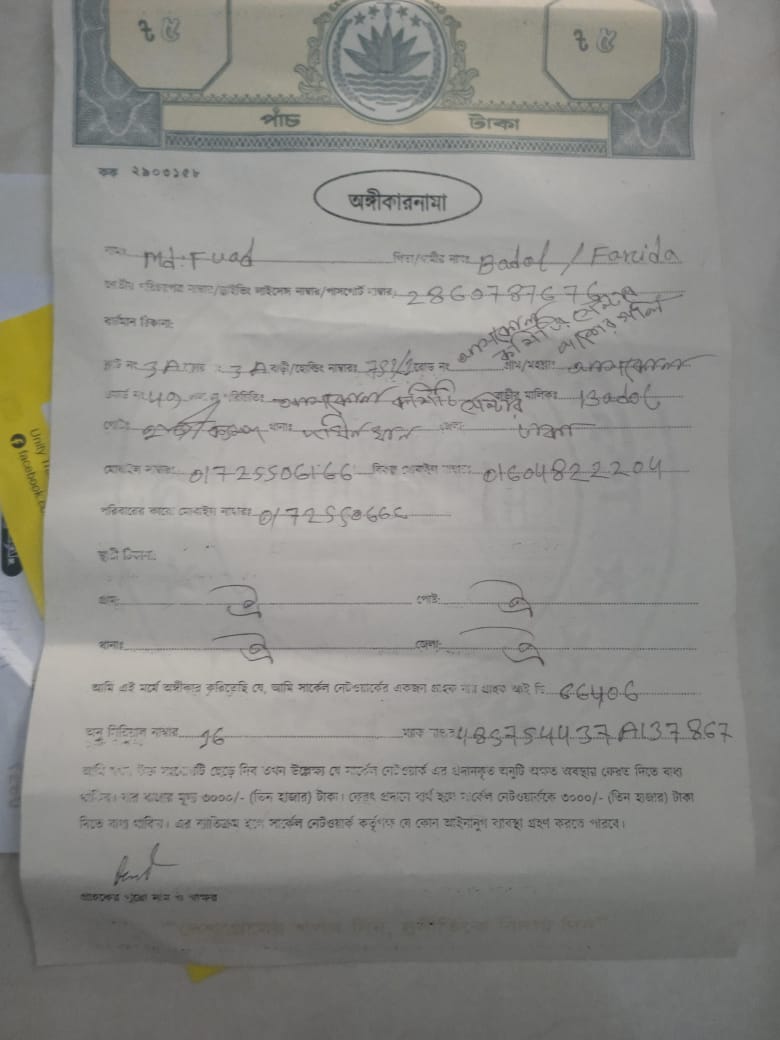 ৳ ৫ ৳ ৫
পাঁচ টাকা
কক ২৯০৩১৫৮
অঙ্গীকারনামা
নাম: Md. Fuad পিতা/স্বামীর নাম: Badol / Farida
জাতীয় পরিচয়পত্র নাম্বার/ড্রাইভিং লাইসেন্স নাম্বার/পাসপোর্ট নাম্বার: 2860787676
বর্তমান ঠিকানা:
3A 3A বাড়ী/হোল্ডিং নাম্বার: 752/2 রোড নং গ্রাম/মহল্লা:
49 কমিউনিটি সেন্টার বাড়ীর মালিক: Badol
থানা: দক্ষিনখান জেলা: ঢাকা
মোবাইল নাম্বার: 01725506166 বিকল্প মোবাইল নাম্বার: 01604822204
পরিবারের কারো মোবাইল নাম্বার:
স্থায়ী ঠিকানা:
গ্রাম: ঐ পোষ্ট: ঐ
থানাঃ ঐ জেলা: ঐ
আমি এই মর্মে অঙ্গীকার করিতেছি যে, আমি সার্কেল নেটওয়ার্কের একজন গ্রাহক যার গ্রাহক আই ডি 66406
অনু সিরিয়াল নাম্বার 16 ম্যাক নং: 485754437A137867
আমি যখন উক্ত সংযোগটি ছেড়ে দিব তখন উল্লেক্ষ্য যে সার্কেল নেটওয়ার্ক এর প্রদানকৃত অনুটি অক্ষত অবস্থায় ফেরত দিতে বাধ্য
থাকিব। যার বাজার মূল্য ৩০০০/- (তিন হাজার) টাকা। ফেরৎ প্রদানে ব্যর্থ হলে সার্কেল নেটওয়ার্ককে ৩০০০/- (তিন হাজার) টাকা
দিতে বাধ্য থাকিব। এর ব্যতিক্রম হলে সার্কেল নেটওয়ার্ক কর্তৃপক্ষ যে কোন আইনানুগ ব্যবস্থা গ্রহণ করতে পারবে।
গ্রাহকের পুরো নাম ও স্বাক্ষর
Unity
facebook.c